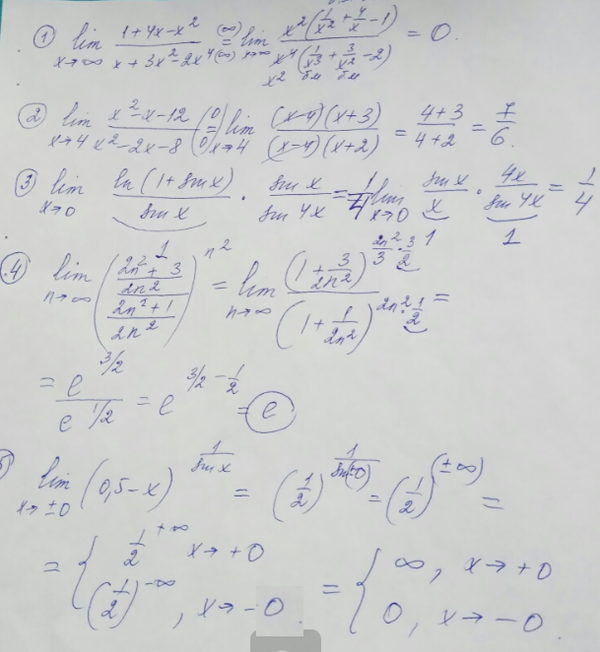 ① lim x→∞ (1+4x−x²)/(x+3x²−2x⁴) (∞)/(∞) = lim x→∞ x²(1/x² + 4/x − 1)/(x⁴(1/x³ + 3/x² − 2)) = 0.
x² бм бм
② lim x→4 (x²−x−12)/(x²−2x−8) (0/0) = lim x→4 (x−4)(x+3)/((x−4)(x+2)) = (4+3)/(4+2) = 7/6.
③ lim x→0 ln(1+sinx)/sinx · sinx/sin4x = 1/4 lim x→0 sinx/x · 4x/sin4x = 1/4
1 1 1
④ lim n→∞ (((2n²+3)/2n²)/((2n²+1)/2n²))^(n²) = lim n→∞ (1+3/2n²)^(2n²/3 · 3/2)/(1+1/2n²)^(2n² · 1/2) =
= e^(3/2)/e^(1/2) = e^(3/2 − 1/2) = e
5 lim x→±0 (0,5−x)^(1/sinx) = (1/2)^(1/sin(±0)) = (1/2)^(±∞) =
= { 1/2^(+∞) x→+0 = { ∞, x→+0
(1/2)^(−∞), x→−0. 0, x→−0.